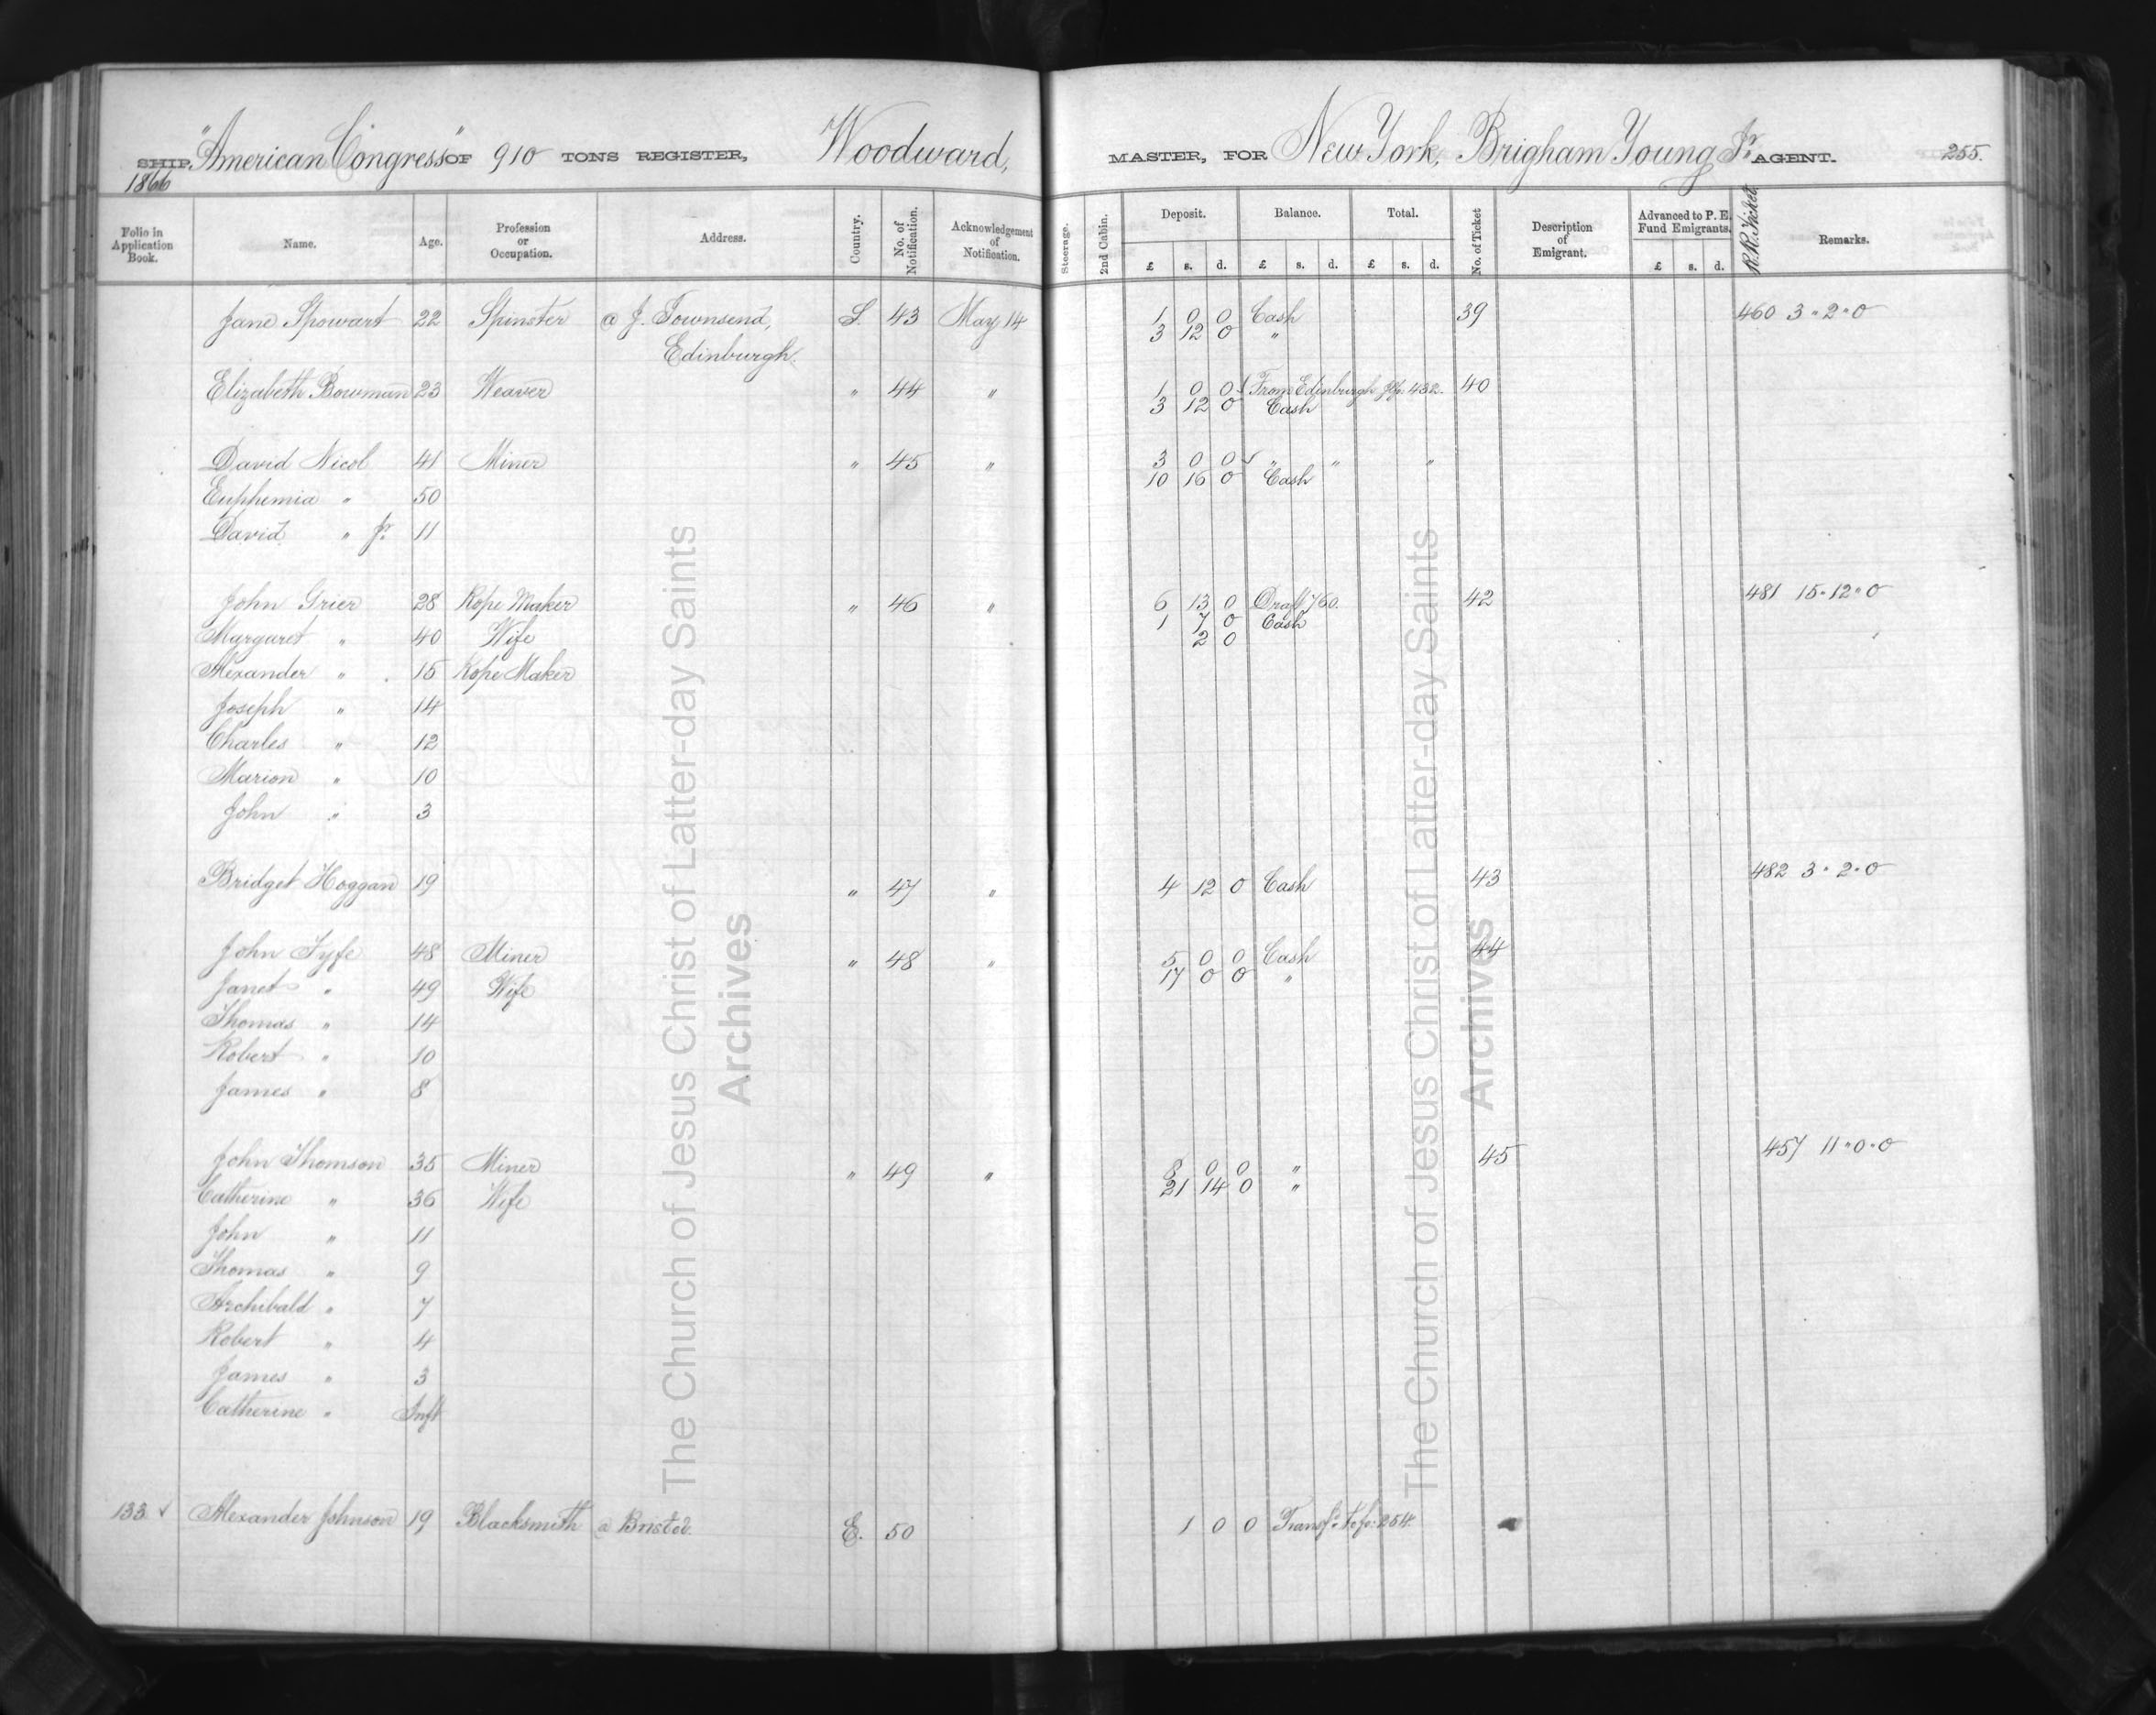 SHIP "American Congress" OF 910 TONS REGISTER, Woodward, MASTER, FOR New York, Brigham Young Jr. AGENT. 255.
1866
Folio in Application Book. Name. Age. Profession or Occupation. Address. Country. No. of Notification. Acknowledgement of Notification. Steerage. 2nd Cabin. Deposit. £ s. d. Balance. £ s. d. Total. £ s. d. No. of Ticket Description of Emigrant. Advanced to P. E. Fund Emigrants. £ s. d. R.R. Ticket Remarks.
Jane Spowart 22 Spinster @ J. Townsend, S. 43 May 14 1 0 0 Cash 39 460 3 " 2 " 0
Edinburgh. 3 12 0 "
Elizabeth Bowman 23 Weaver " 44 " 1 0 0 From Edinburgh 432. 40
3 12 0 Cash
David Nicol 41 Miner " 45 " 3 0 0 " " "
10 16 0 Cash
Euphemia " 50
David " Jr. 11
John Grier 28 Rope Maker " 46 " 6 13 0 Draft 760. 42 481 15 " 12 " 0
1 7 0 Cash
Margaret " 40 Wife 2 0
Alexander " 15 Rope Maker
Joseph " 14
Charles " 12
Marion " 10
John " 3
Bridget Hoggan 19 " 47 " 4 12 0 Cash 43 482 3 " 2 " 0
John Fyfe 48 Miner " 48 " 5 0 0 Cash 44
17 0 0 "
Janet " 49 Wife
Thomas " 14
Robert " 10
James " 8
John Thomson 35 Miner " 49 " 8 0 0 " 45 457 11 " 0 " 0
21 14 0 "
Catherine " 36 Wife
John " 11
Thomas " 9
Archibald " 7
Robert " 4
James " 3
Catherine " Inft
133 ✓ Alexander Johnson 19 Blacksmith @ Bristol. E. 50 1 0 0 Transfd. to fo. 254.
The Church of Jesus Christ of Latter-day Saints
Archives
The Church of Jesus Christ of Latter-day Saints
Archives